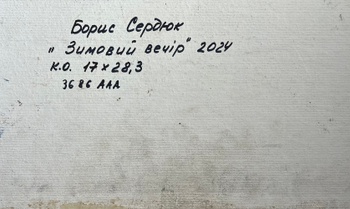 Борис Сердюк
„ Зимовий вечір" 2024
К.О. 17×28,3
3686 ААА